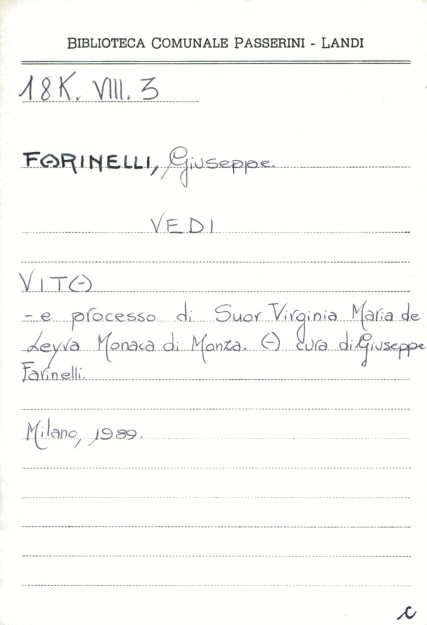 BIBLIOTECA COMUNALE PASSERINI - LANDI
18K. VIII. 3
FARINELLI, Giuseppe
VEDI
VITA
- e processo di Suor Virginia Maria de
Leyva Monaca di Monza. A cura di Giuseppe
Farinelli.
Milano, 1989.
c